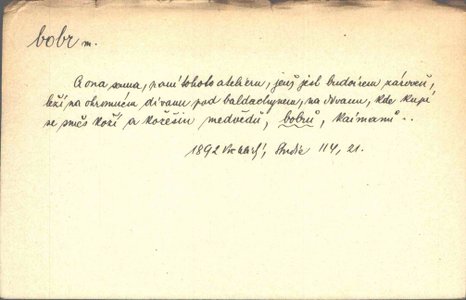 bobr m.
A ona sama, paní tohoto atelieru, jenž jest budoirem zároveň,
leží na ohromném divanu pod baldachynem, na divanu, kde kupí
se směs koží a kožešin medvědů, bobrů, kaimanů ..
1892 Vrchlický, Studie 114, 21.